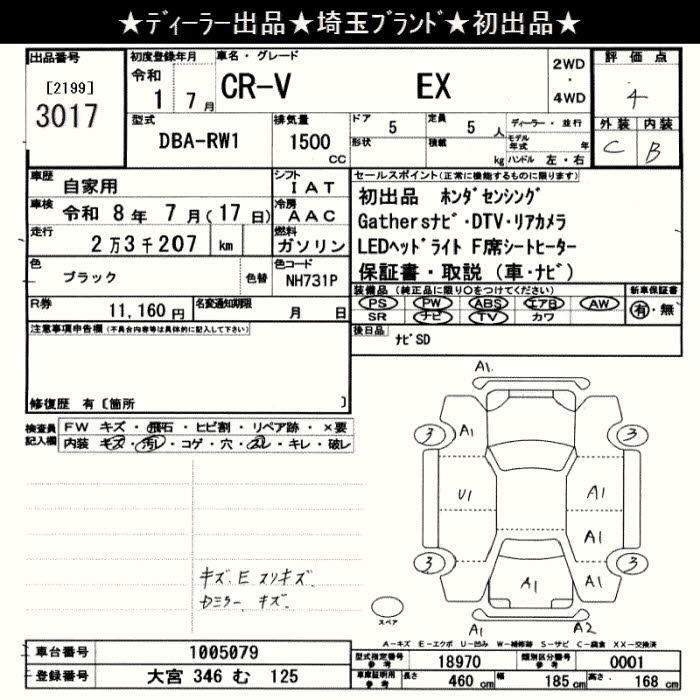 ★ディーラー出品★埼玉ブランド★初出品★
出品番号
[2199]
3017
初度登録年月
令和
1 7月
車名・グレード
CR-V EX
2WD
・
4WD
評価点
4
外装 内装
C B
型式
DBA-RW1
排気量
1500
cc
ドア 5
形状
定員 5 人
積載 kg
ディーラー・並行
モデル年式 年
ハンドル 左・右
車歴 自家用
シフト IAT
車検 令和 8年 7月(17日)
冷房 AAC
走行 2万3千207 km
燃料 ガソリン
色 ブラック 色替
色コード NH731P
R券 11,160円
名変通知期限 月 日
セールスポイント(正常に機能するものに限ります)
初出品 ホンダセンシング
Gathersナビ・DTV・リアカメラ
LEDヘッドライト F席シートヒーター
保証書・取説(車・ナビ)
装備品(純正品に限り○をつけてください)
新車保証書
PS PW ABS エアB AW
SR ナビ TV カワ
有・無
後日品
ナビSD
注意事項申告欄(不具合内容等は具体的に記入して下さい)
修復歴 有〔箇所 〕
検査員
記入欄
FW キズ・飛石・ヒビ割・リペア跡・×要
内装 キズ・汚レ・コゲ・穴・スレ・キレ・破レ
A1
3
A1
3
U1
A1
A1
3
A1
A1
3
A1
A2
キズ E スリキズ
ロミラー キズ
スペア
A-キズ E-エクボ U-凹み W-補修跡 S-サビ C-腐食 XX-交換済
車台番号 1005079
登録番号 大宮 346 む 125
型式指定番号
参考
18970
類別区分番号
参考
0001
車庫証明用
参考
長さ 460 cm
幅 185 cm
高さ 168 cm